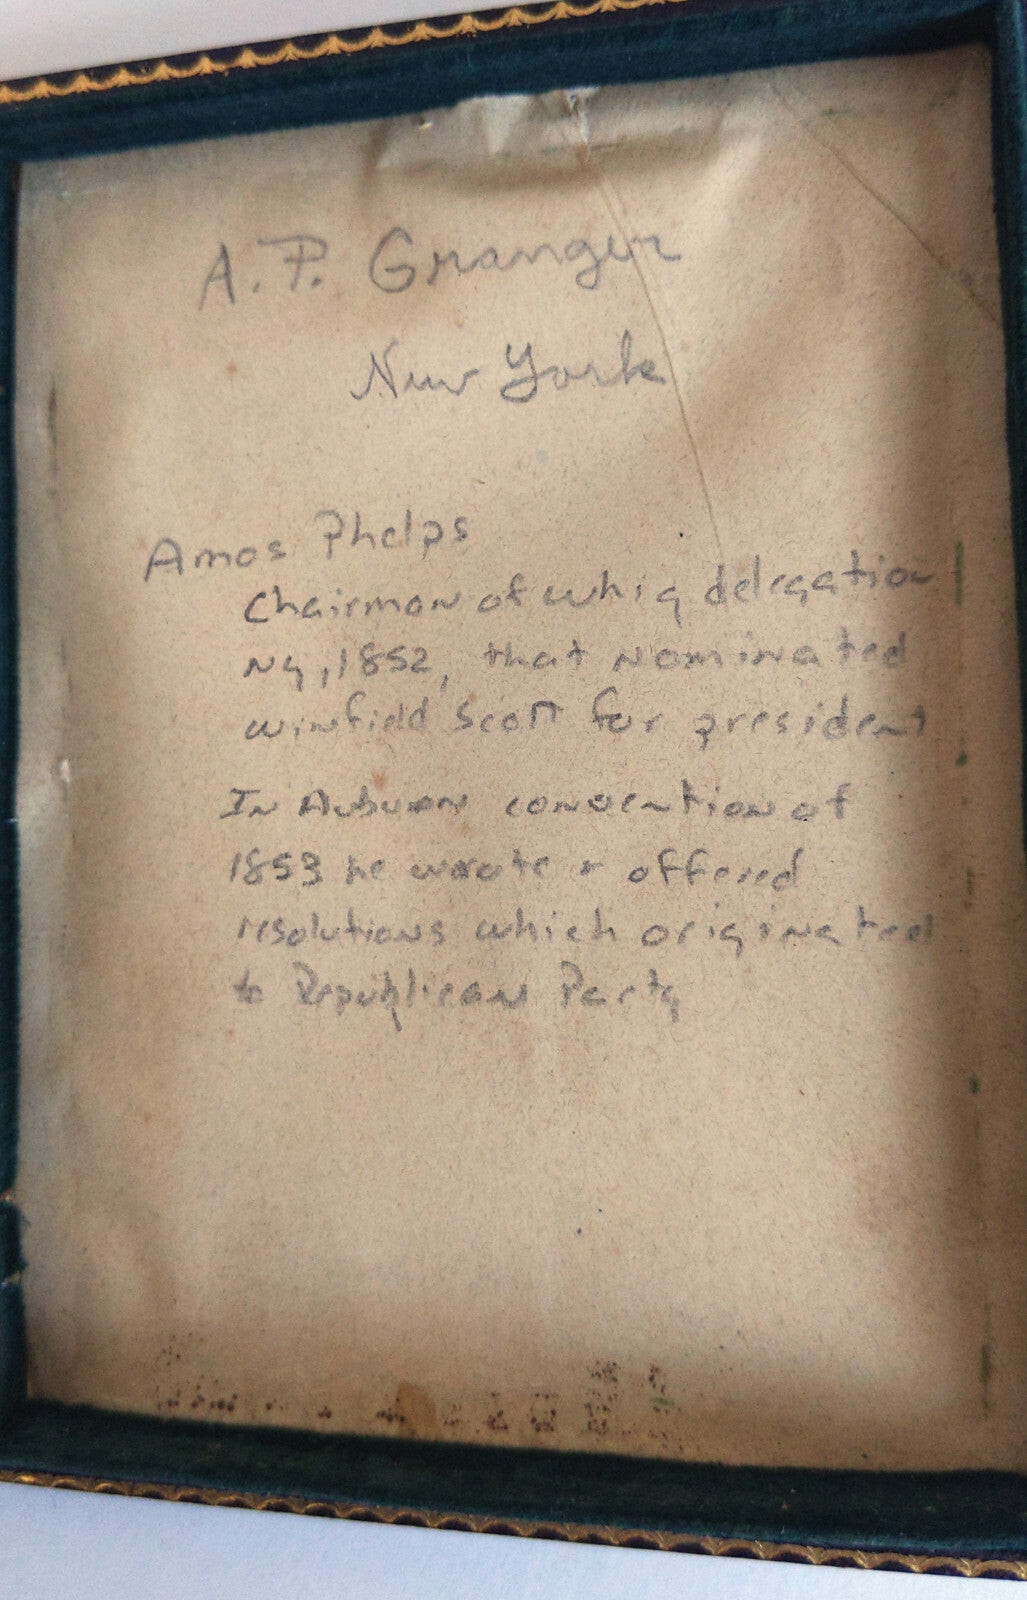 A. P. Granger
New York
Amos Phelps
Chairman of whig delegation
Ny, 1852, that nominated
winfield Scott for president
In Auburn convention of
1853 he wrote & offered
resolutions which originated
to Republican Party